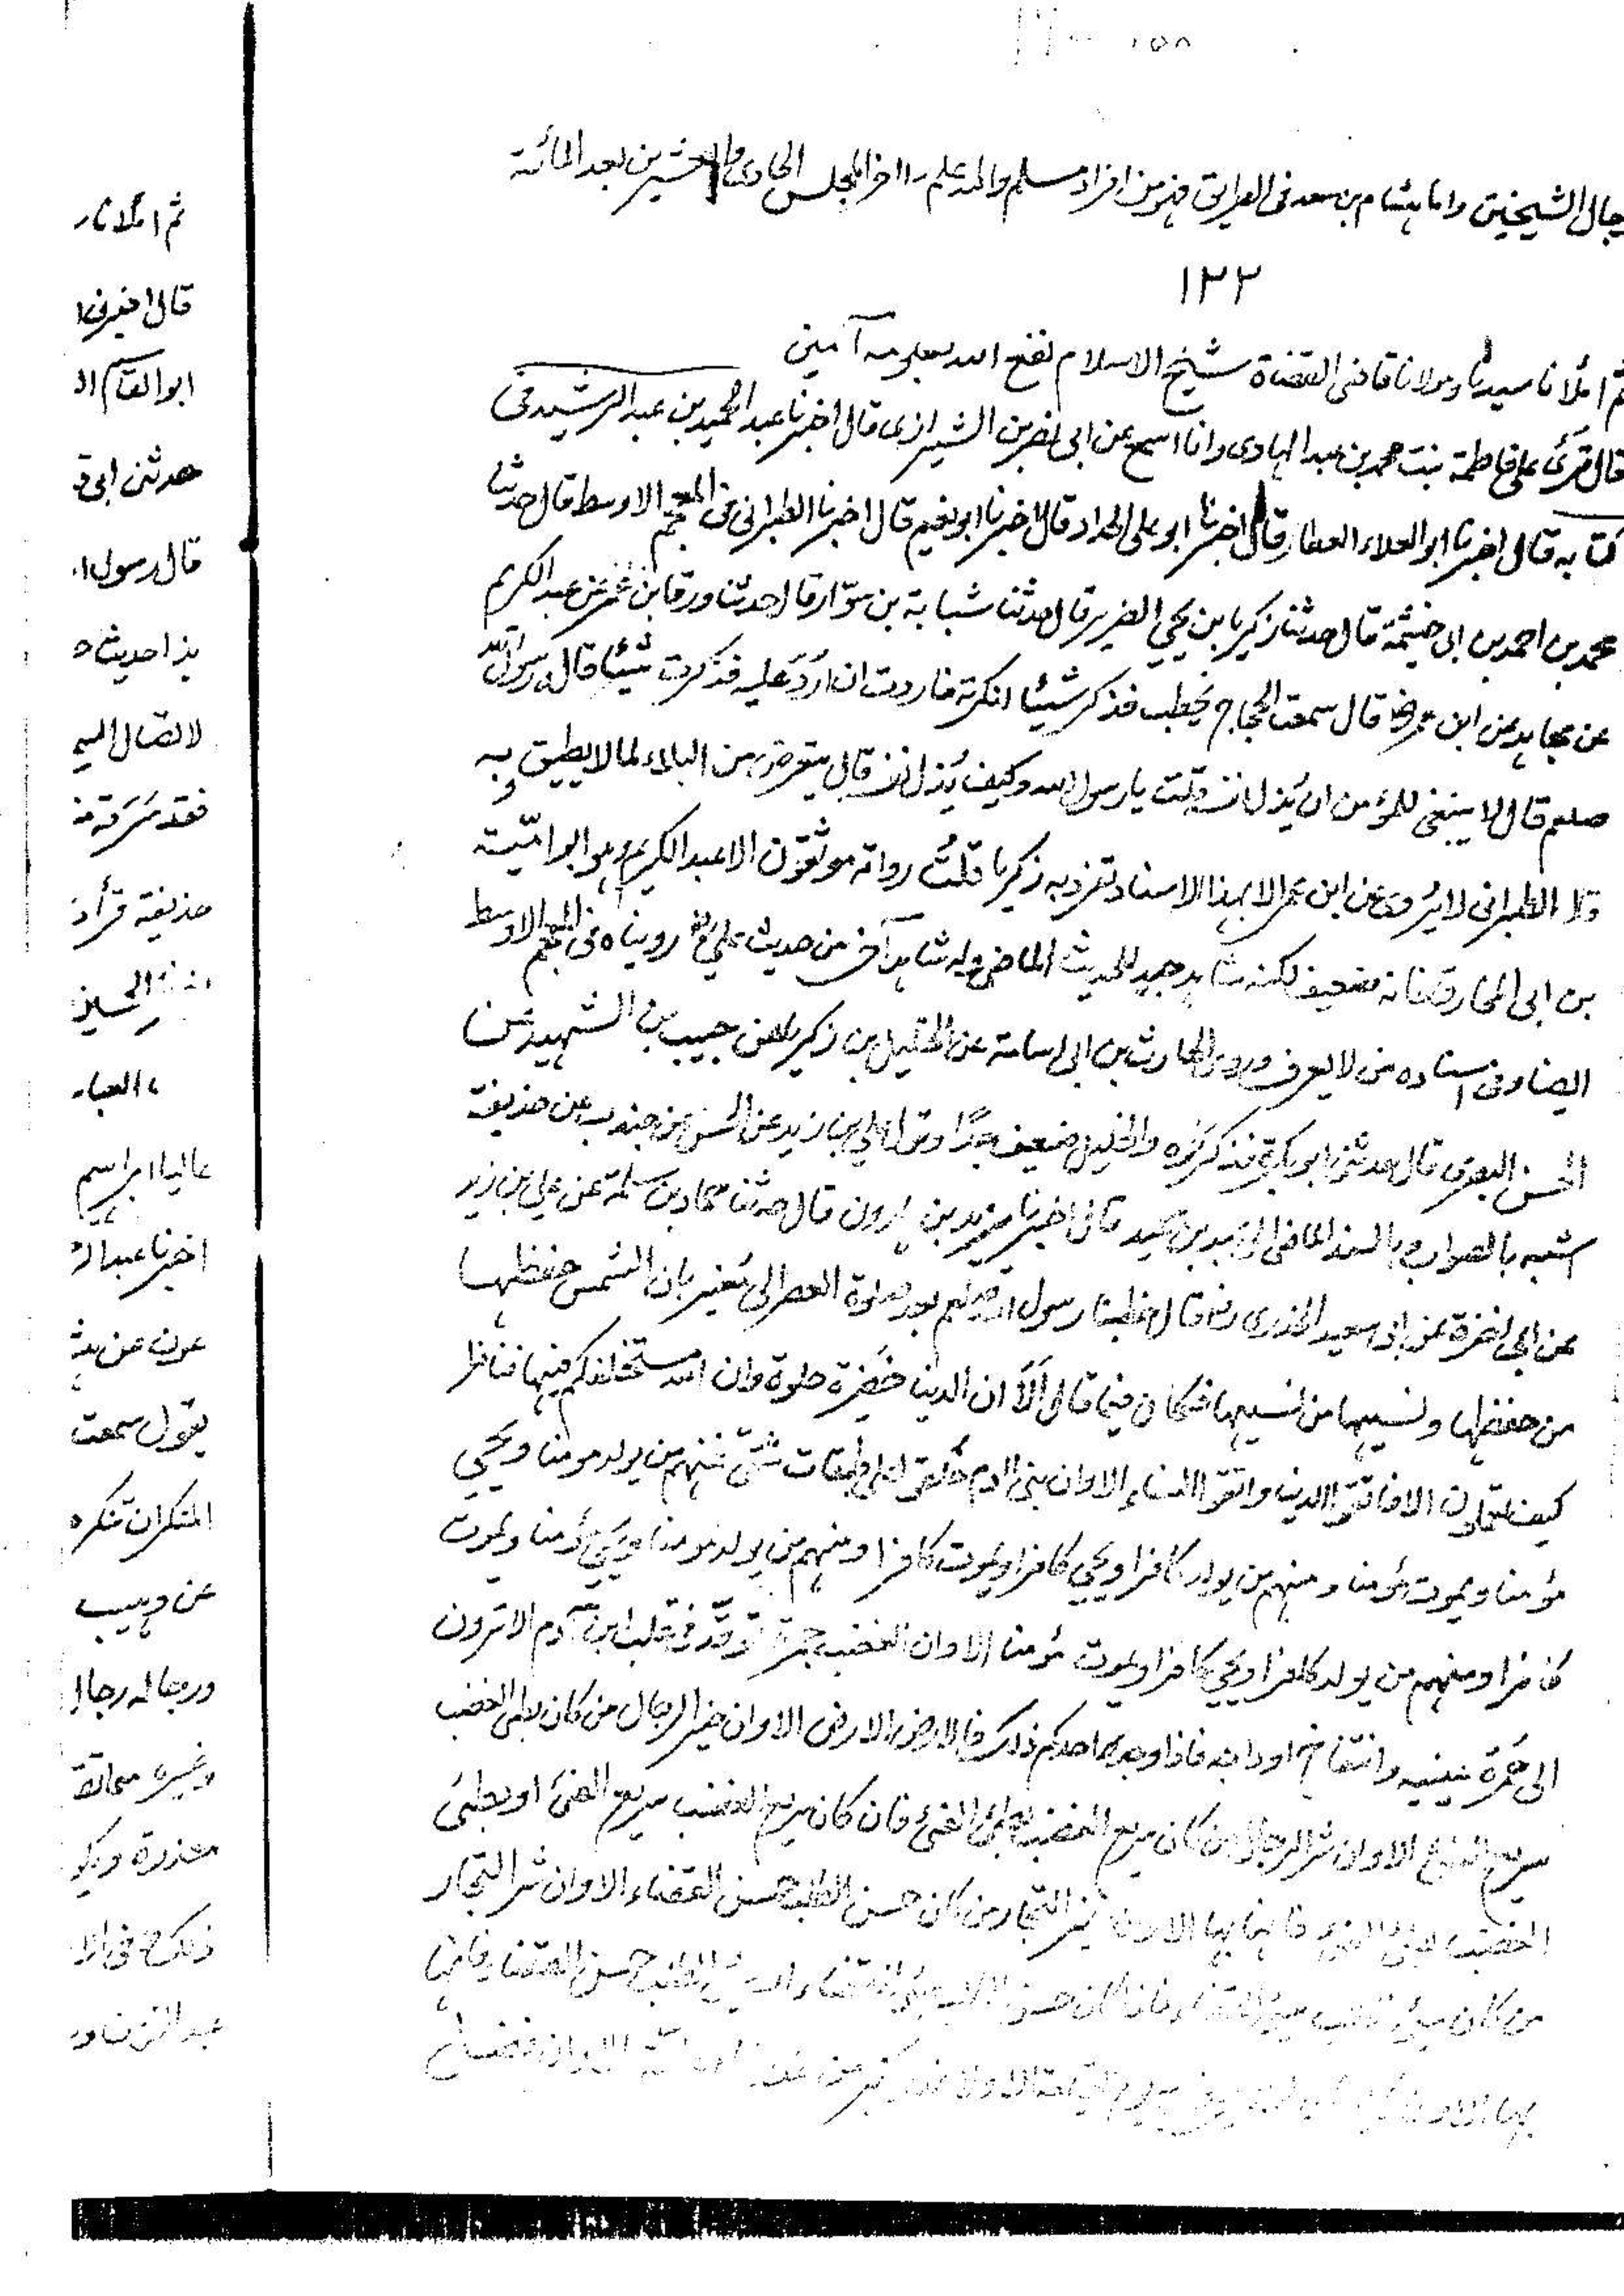 رجال الشيخين واما هشام بن سعد فى الغرايق فهو من افراد مسلم والله اعلم آخر المجلس الحادى والعشرين بعد المائة
١٢٢
ثم املأنا سيدنا ومولانا قاضى القضاة شيخ الاسلام نفع الله بعلومه آمين
قال قرئ على فاطمة بنت محمد بن عبد الهادى وانا اسمع عن ابى نصر بن الشيرازى قال اخبرنا عبد الحميد بن عبد الرشيد فى
كتابه قال اخبرنا ابو العلاء العطار قال اخبرنا ابو على الحداد قال اخبرنا ابو نعيم قال اخبرنا الطبرانى فى المعجم الاوسط قال حدثنا
محمد بن احمد بن ابى خيثمة قال حدثنا زكريا بن يحيى الضرير قال حدثنا شبابة بن سوّار قال حدثنا ورقا بن عمر عن عبد الكريم
عن مجاهد عن ابن عمر رضـ قال سمعت الحجاج يخطب فذكر شيئا انكرته فاردت ان اردَّ عليه فذكرت شيئا قال رسول الله
صلعم قال لا ينبغى للمؤمن ان يُذل نفسه قلت يا رسول الله وكيف يُذل نفسه قال يتعرض من البلاء لما لا يطيق وبه
قال الطبرانى لا يُروى عن ابن عمر الا بهذا الاسناد تفرد به زكريا قلتُ رواته موثقون الا عبد الكريم وهو ابو اميّة
بن ابى المخارق فانه ضعيف لكنه شاهد جيد للحديث الماضى وله شاهد آخر من حديث على رضـ رويناه فى المعجم الاوسط
ايضا وفى اسناده من لا يعرف وروى الحارث بن ابى اسامة عن الخليل بن زكريا عن حبيب بن الشهيد عن
الحسن البصرى قال حدثنى ابو بكرة فذكر نحوه والخليل ضعيف جدًا وقول على بن زيد عن الحسن عن جندب عن حذيفة
اشبه بالصواب وبالسند الماضى الى عبد بن حميد قال اخبرنا يزيد بن هارون قال حدثنا حماد بن سلمة عن على بن زيد
عن ابى نضرة عن ابى سعيد الخدرى رضـ قال خطبنا رسول الله صلعم بعد صلوة العصر الى مُغيربان الشمس حفظها
من حفظها ونسيها من نسيها فكان فيما قال اَلَا ان الدنيا خَضِرَة حلوة وان الله مستخلفكم فيها فناظر
كيف تعملون الا فاتقوا الدنيا واتقوا النساء الا وان بنى ادم خُلقوا على طبقات شتىّ فمنهم من يولد مومنا ويحيى
مؤمنا ويموت مؤمنا ومنهم من يولد كافرا ويحيى كافرا ويموت كافرا ومنهم من يولد مومنا ويحيى مؤمنا ويموت
كافرا ومنهم من يولد كافرا ويحيى كافرا ويموت مؤمنا الا وان الغضب جمرة توقّد فى قلب ابن آدم الا ترون
الى حُمرة عينيه وانتفاخ اوداجه فاذا وجد احدكم ذلك فالارض الارض الا وان خير الرجال من كان بطى الغضب
سريع الفئ الا وان شر الرجال من كان سريع الغضب بطئ الفئ فان كان سريع الغضب سريع الفئ او بطئ
الغضب بطئ الفئ فانها بها الا وان خير التجار من كان حسن الطلب حسن القضاء الا وان شر التجار
من كان سئ الطلب سئ القضاء فان كان حسن الطلب سئ القضاء او سئ الطلب حسن القضاء فانها
بها الا وان لكل غادر لواء يوم القيمة الا ولا غدر اكبر من غدر
ثم املأنا
قال اخبرنى
ابو القاسم
حدثنى ابى
قال رسول
هذا حديث
لانضال
فقد
حذيفة قرأ
الحسين
العباد
عاليا ابراهيم
اخبرنا عبد
عون عن
يقول سمعت
المنكر ان تنكره
عن وهيب
ورجاله رجال
وغيره
معذرة
ذلك فى
عبد